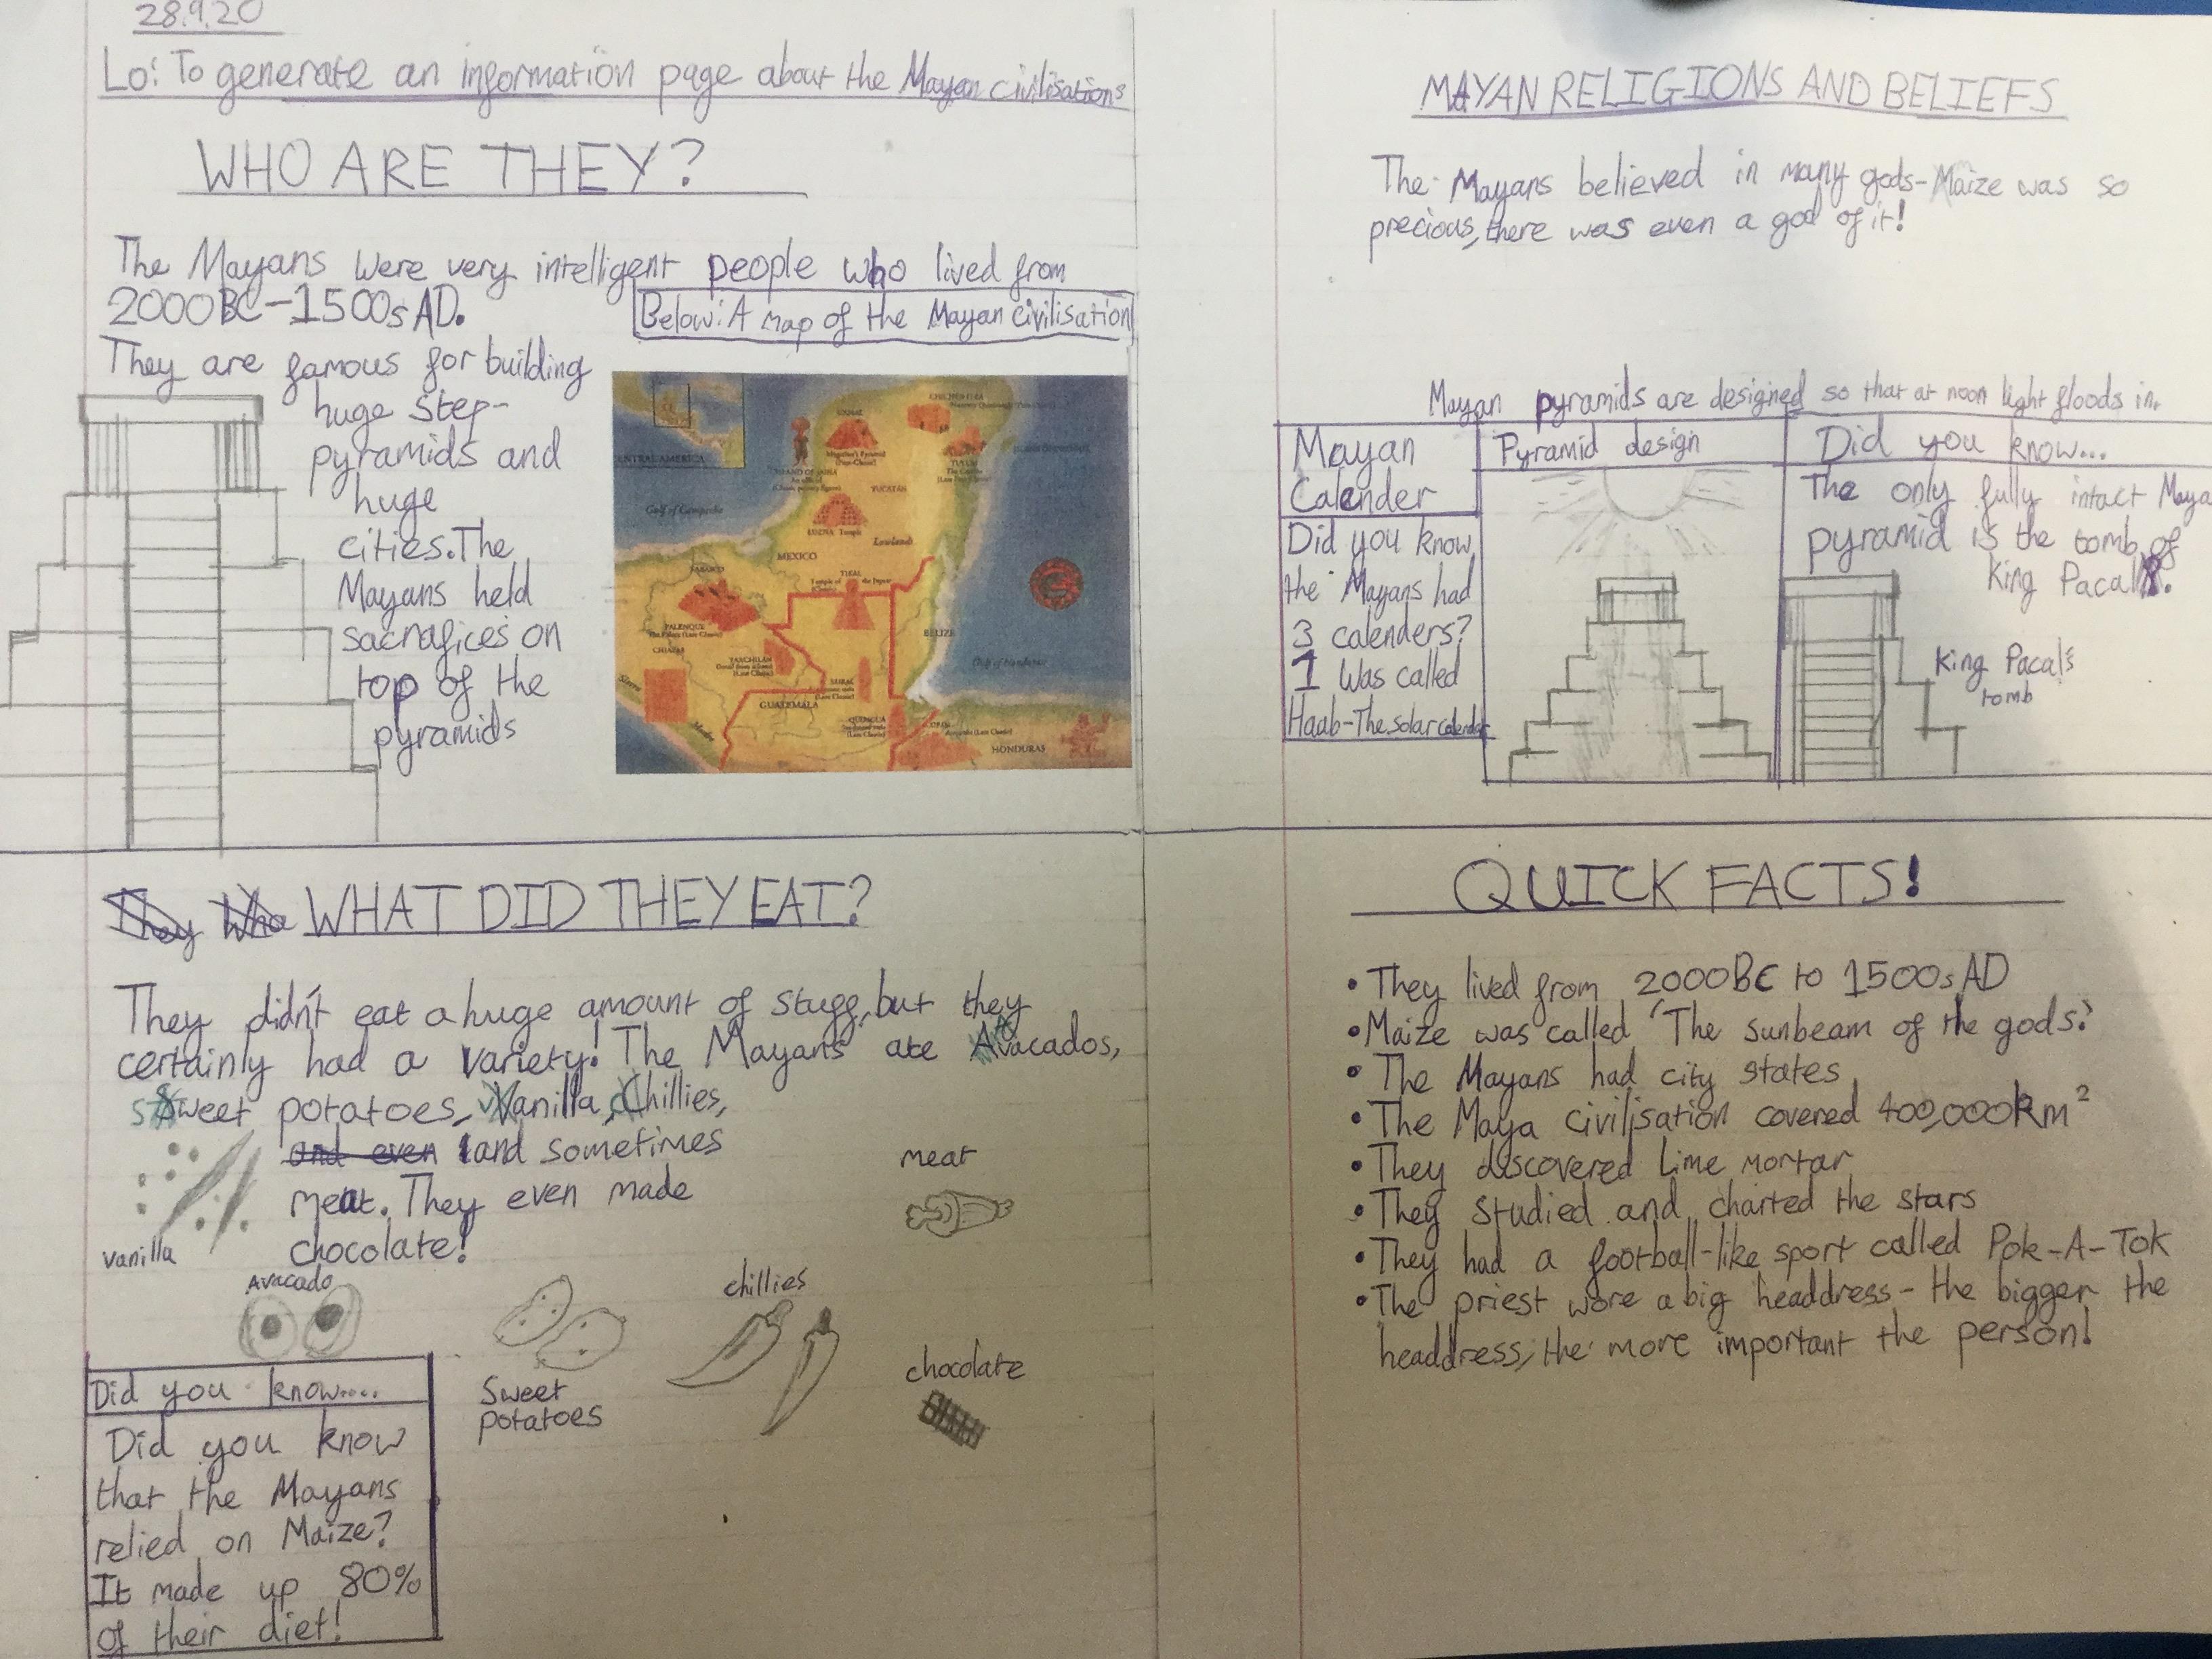 28.9.20
Lo: To generate an information page about the Mayan civilisations
WHO ARE THEY?
The Mayans were very intelligent people who lived from
2000BC-1500s AD.
Below: A map of the Mayan civilisation
They are famous for building
huge step-
pyramids and
huge
cities. The
Mayans held
sacrafices on
top of the
pyramids
CENTRAL AMERICA
Gulf of Campeche
YUCATAN
Lowlands
MEXICO
TIKAL
PALENQUE
CHIAPAS
BELIZE
Gulf of Honduras
GUATEMALA
QUIRIGUA
HONDURAS
Sierra
Madre
WHAT DID THEY EAT?
They didn't eat a huge amount of stuff, but they
certainly had a variety! The Mayans ate Avacados,
sweet potatoes, vanilla, chillies,
and even and sometimes
meat. They even made
chocolate!
vanilla
Avacado
Sweet
potatoes
chillies
meat
chocolate
Did you know....
Did you know
that the Mayans
relied on Maize?
It made up 80%
of their diet!
MAYAN RELIGIONS AND BELIEFS
The Mayans believed in many gods-Maize was so
precious, there was even a god of it!
Mayan pyramids are designed so that at noon light floods in.
Mayan
Calender
Did you know
the Mayans had
3 calenders?
1 Was called
Haab-The solar calendar
Pyramid design
Did you know...
The only fully intact Maya
pyramid is the tomb of
King Pacal.
King Pacal's
tomb
QUICK FACTS!
• They lived from 2000BC to 1500s AD
• Maize was called 'The sunbeam of the gods'.
• The Mayans had city states
• The Maya civilisation covered 400,000km²
• They discovered Lime mortar
• They studied and charted the stars
• They had a football-like sport called Pok-A-Tok
• The priest wore a big headdress - the bigger the
headdress, the more important the person!